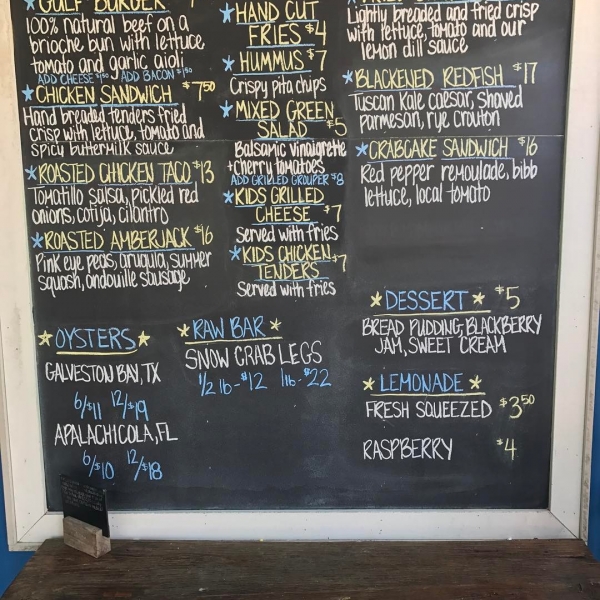 GULF BURGER
100% natural beef on a
brioche bun with lettuce
tomato and garlic aioli
ADD CHEESE $1.50 ADD BACON $1.50
CHICKEN SANDWICH $7.50
Hand breaded tenders fried
crisp with lettuce, tomato and
spicy buttermilk sauce
ROASTED CHICKEN TACO $13
Tomatillo salsa, pickled red
onions, cotija, cilantro
ROASTED AMBERJACK $16
Pink eye peas, arugula, summer
squash, andouille sausage
OYSTERS
GALVESTON BAY, TX
6/$11 12/$19
APALACHICOLA, FL
6/$10 12/$18
HAND CUT
FRIES $4
HUMMUS $7
Crispy pita chips
MIXED GREEN
SALAD $5
Balsamic vinaigrette
+ cherry tomatoes
ADD GRILLED GROUPER $8
KIDS GRILLED
CHEESE $7
Served with fries
KIDS CHICKEN
TENDERS $7
Served with fries
RAW BAR
SNOW CRAB LEGS
1/2 lb - $12 1 lb - $22
Lightly breaded and fried crisp
with lettuce tomato and our
lemon dill sauce
BLACKENED REDFISH $17
Tuscan Kale caesar, shaved
parmesan, rye crouton
CRABCAKE SANDWICH $16
Red pepper remoulade, bibb
lettuce, local tomato
DESSERT $5
BREAD PUDDING, BLACKBERRY
JAM, SWEET CREAM
LEMONADE
FRESH SQUEEZED $3.50
RASPBERRY $4